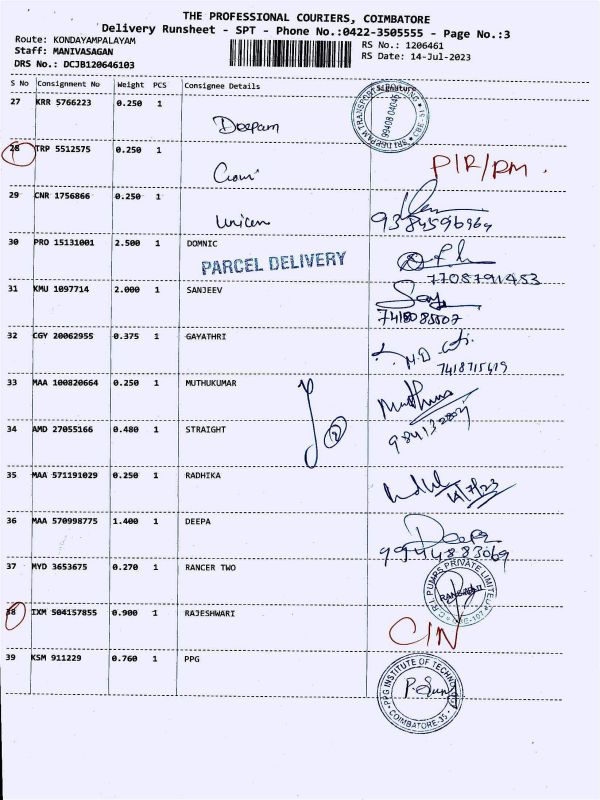 THE PROFESSIONAL COURIERS, COIMBATORE
Delivery Runsheet - SPT - Phone No.:0422-3505555 - Page No.:3
Route: KONDAYAMPALAYAM
Staff: MANIVASAGAN
DRS No.: DCJB120646103
RS No.: 1206461
RS Date: 14-Jul-2023
S No Consignment No Weight PCS Consignee Details Signature
27 KRR 5766223 0.250 1 Deepam
SRI DEEPAM TRANSPORT
28 TRP 5512575 0.250 1
29 CNR 1756866 0.250 1 Unicem
9384596969
30 PRO 15131001 2.500 1 DOMNIC
PARCEL DELIVERY
7708791453
31 KMU 1097714 2.000 1 SANJEEV
32 CGY 20062955 0.375 1 GAYATHRI
7418715419
33 MAA 100820664 0.250 1 MUTHUKUMAR
34 AMD 27055166 0.480 1 STRAIGHT
35 MAA 571191029 0.250 1 RADHIKA
14/7/23
36 MAA 570998775 1.400 1 DEEPA
Deepa
9944883069
37 MYD 3653675 0.270 1 RANCER TWO
C.R.I. PUMPS PRIVATE LIMITED
38 IXM 504157855 0.900 1 RAJESHWARI
C/N
39 KSM 911229 0.760 1 PPG
PPG INSTITUTE OF TECHNOLOGY
COIMBATORE-35